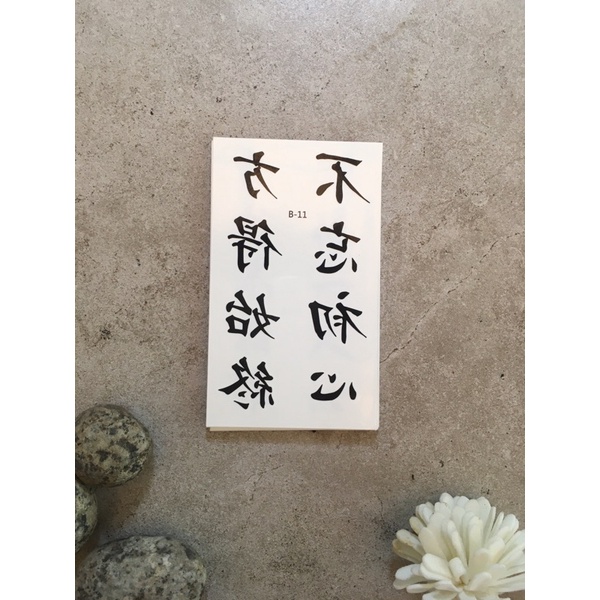 不忘初心
方得始終
B-11